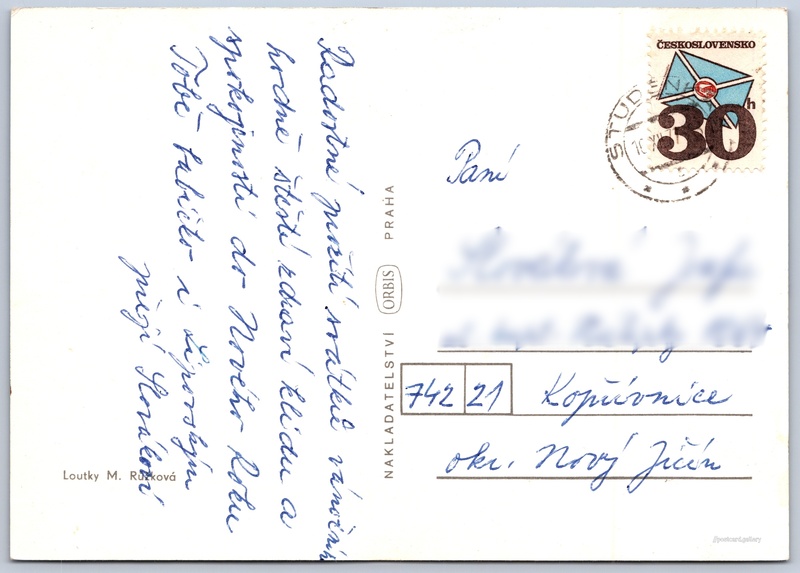 Radostné prožití svátků vánočních
hodně štěstí zdraví klidu a
spokojenosti do Nového Roku
Tobě babičko i Liparským
přejí Slovákovi
Loutky M. Růžková
NAKLADATELSTVÍ ORBIS PRAHA
ČESKOSLOVENSKO
30 h
STUDÉN
10.XII
Paní
742 21 Kopřivnice
okr. Nový Jičín
@postcart.gallery